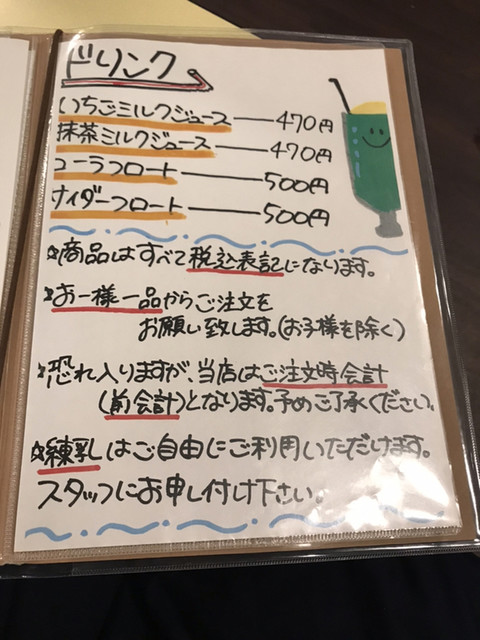 ドリンク
いちごミルクジュース―470円
抹茶ミルクジュース―470円
コーラフロート―500円
サイダーフロート―500円
☆商品はすべて税込表記になります。
☆お一様一品からご注文を
お願い致します。(お子様を除く)
☆恐れ入りますが、当店はご注文時会計
(前会計)となります。予めご了承ください。
☆練乳はご自由にご利用いただけます。
スタッフにお申し付け下さい。